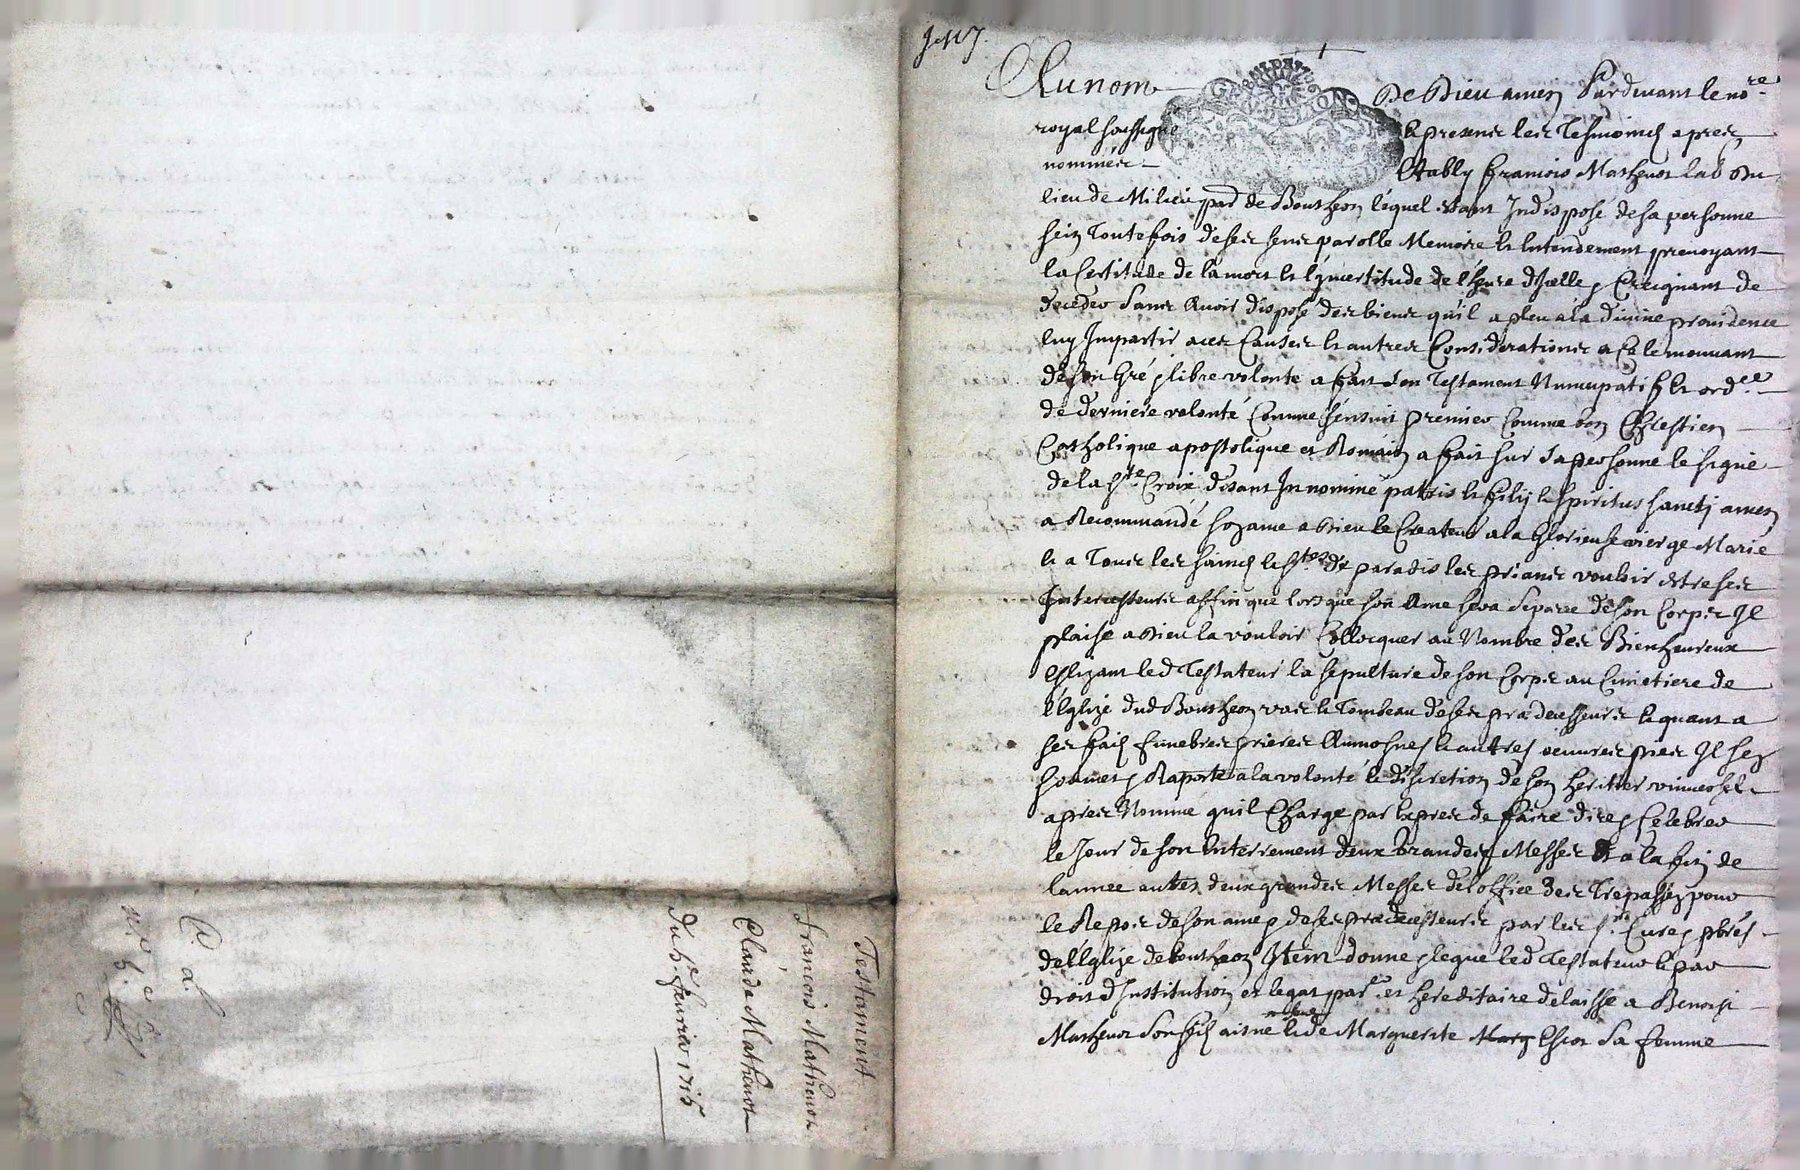 Au nom De Dieu amen Pardevant le no.re
royal soussigné Et presens les Tesmoincts apres
nommés Estably Francois Mathevot lab du
lieu de Milieu parr de Boutheon lequel Estant Indisposé de sa personne
sein Toutefois de ses sens parolle Memoire Et Entendement prevoyant
la Certitude de la mort Et lincertitude de lheure dJcelle Creignant de
deceder sans Avoir disposé des biens quil a pleu a la divine providence
luy Impartir a ces Causes Et autres Considerations a Ce le mouvant
de son Gré libre volonté a fait son Testament Nuncupatif Et ord.ce
de derniere volonté Comme sensuit premier Comme bon Chrestien
Catholique apostolique et Romain a fait sur sa personne le signe
de la Ste Croix disant In nomine patris Et filij Et spiritus sanctj amen
a Recommandé son ame a Dieu le Createur a la Glorieuse vierge Marie
Et a Tous les saincts Et stes de paradis les priant vouloir estre ses
Intercesseurs affin que lorsque son Ame sera separee de son Corps Il
plaise a Dieu la vouloir Collocquer au Nombre des Bienheureux
Eslizant led Testateur la sepulture de son Corps au Cimetiere de
lEglize dud Boutheon vas Et Tombeau de ses predecesseurs Et quant a
ses frais funebres prieres Aumosnes Et autres oeuvres pies Il sen
Raporte a la volonté Et discretion de son heritier universel
apres Nommé quil Charge par Expres de faire dire Celebrer
le Jour de son Enterrement deux Grandes Messes Et a la fin de
lannee autres deux grandes Messes de loffice des Trepassez pour
le Repos de son ame de ses predecesseurs par les srs Cure pbres
de lEglize de boutheon Item donne legue led Testateur Et par
droit dInstitution et legat par.er et hereditaire delaisse a Benoist
Mathevot son fils aisné Et de Marguerite Marg Escot sa femme
Testament
Francois Mathevot
Claude Mathevot
du 5e fevrier 1715